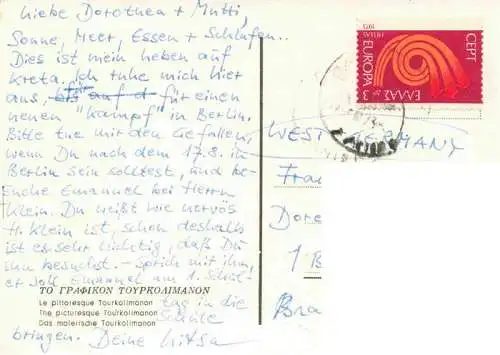 Liebe Dorothea + Mutti,
Sonne, Meer, Essen + Schlafen..
Dies ist mein Leben auf
Kreta. Ich ruhe mich hier
aus, für einen
neuen "Kampf" in Berlin.
Bitte tue mir den Gefallen,
wenn Du nach dem 17.8. in
Berlin sein solltest, und be-
suche Emanuel bei Herrn
Klein. Du weißt wie nervös
H. Klein ist, schon deshalb
ist es sehr wichtig, daß Du
ihn besuchst. – Sprich mit ihm,
er soll Emanuel am 1. Schul-
tag in die
Schule
bringen. Deine
ΤΟ ΓΡΑΦΙΚΟΝ ΤΟΥΡΚΟΛΙΜΑΝΟΝ
Le pittoresque Tourkolimanon
The picturesque Tourkolimanon
Das malerische Tourkolimanon
CEPT
EUROPA
HELLAS
ΕΛΛΑΣ 3
WEST GERMANY
Frau
Doro
1 B
Bra